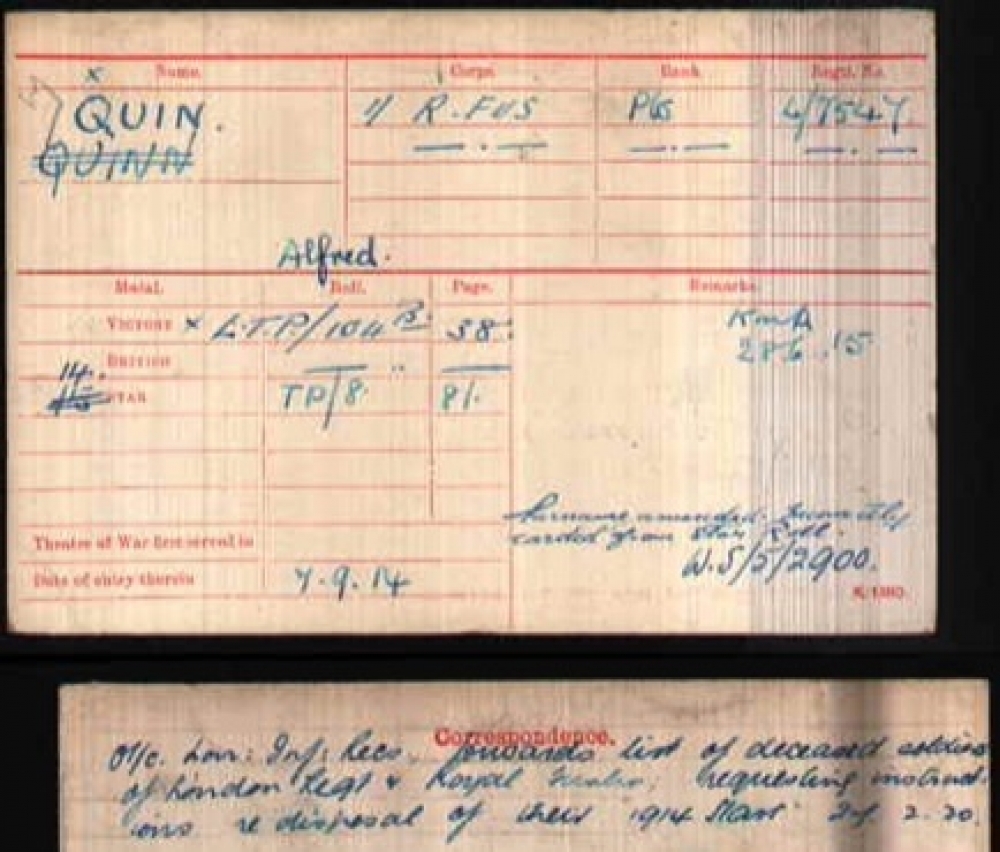 x Name. Corps. Rank. Regtl. No.
QUIN. 1/ R. FUS Pte L/7547
QUINN — . — — . — — . —
Alfred.
Medal. Roll. Page. Remarks.
VICTORY x L.T.P/104 B. 38. K in A
BRITISH — " — 28.6.15
14 15 STAR TP/8 81.
Surname amended.
carded from Star Roll.
Theatre of War first served in
W.S/5/2900.
Date of entry therein 7.9.14
K/1380.
Correspondence.
O i/c. Lon: Inf: Recs. forwards list of deceased soldiers
of London Regt & Royal requesting instruct-
ions re disposal of their 1914 Stars 2.20.